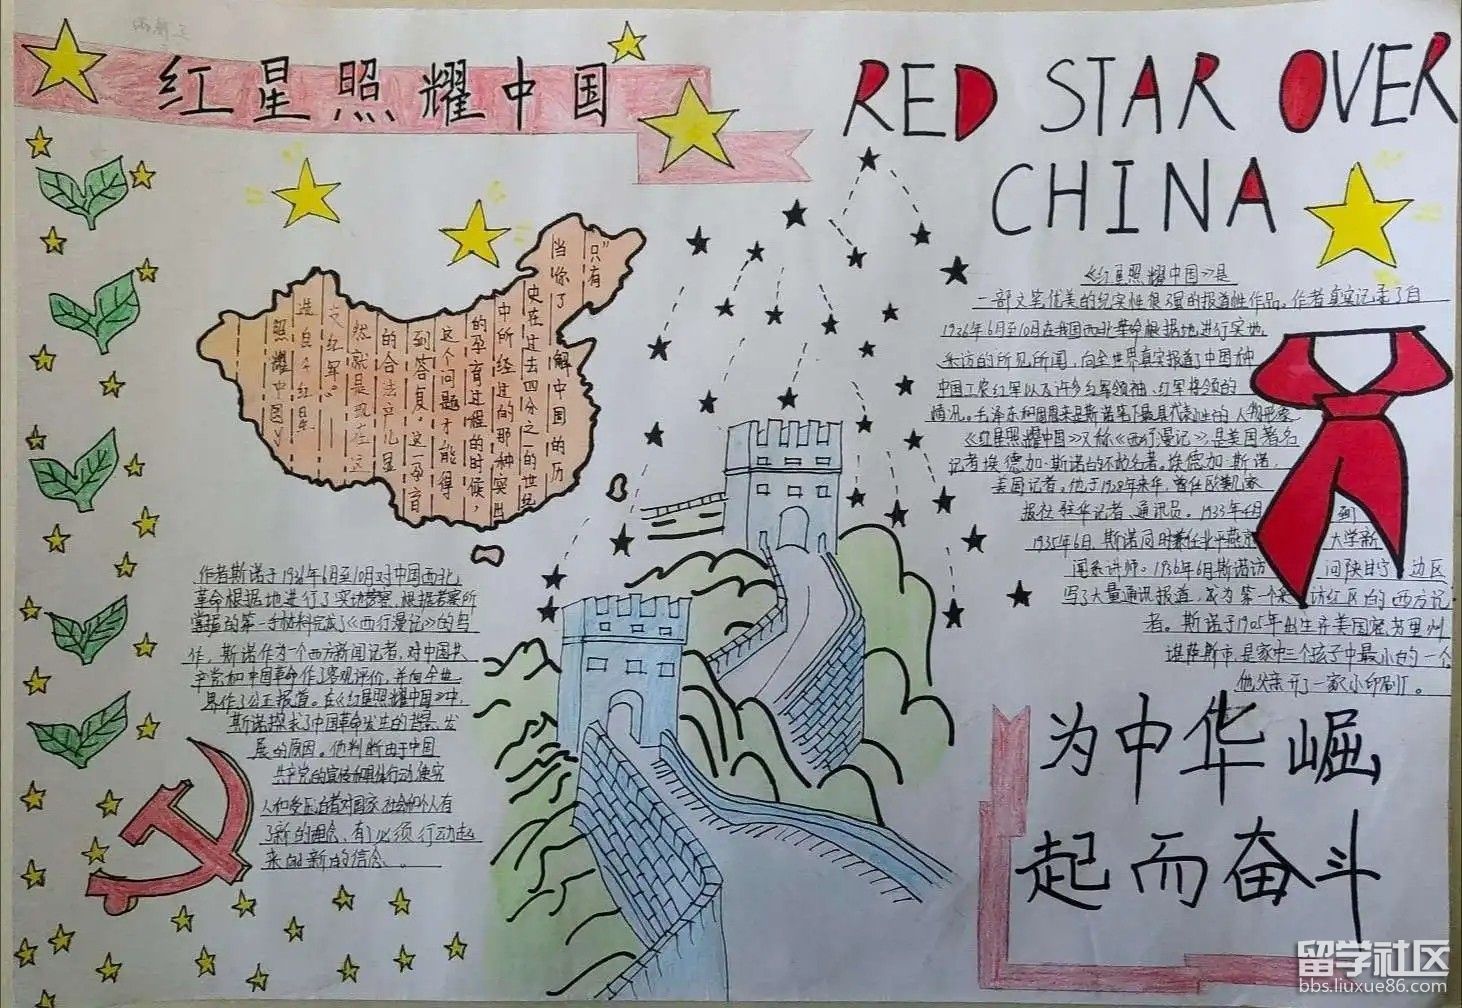 红星照耀中国
RED STAR OVER
CHINA
“只有
当你了
解中国的历
史在过去四分之一的世纪
中所经过的那种突出
的孕育过程的时候，
这个问题才能得
到答复。这一孕育
的合法产儿显
然就是现在这
支红军。”
——
选自《红星
照耀中国》
《红星照耀中国》是
一部文笔优美的纪实性很强的报道性作品。作者真实记录了自
1936年6月至10月在我国西北革命根据地进行实地
采访的所见所闻，向全世界真实报道了中国和
中国工农红军以及许多红军领袖、红军将领的
情况。毛泽东和周恩来是斯诺笔下最具代表性的人物形象
《红星照耀中国》又称《西行漫记》，是美国著名
记者埃德加·斯诺的不朽名著。埃德加·斯诺，
美国记者。他于1928年来华，曾任欧美几家
报社驻华记者、通讯员。1933年4月 到
1935年6月，斯诺同时兼任北平燕京 大学新
闻系讲师。1936年6月斯诺访 问陕甘宁 边区
写了大量通讯报道，成为第一个采 访红区的西方记
者。斯诺于1905年出生于美国密苏里州
堪萨斯市，是家中三个孩子中最小的一个
他父亲开了一家小印刷厂。
作者斯诺于1936年6月至10月对中国西北
革命根据地进行了实地考察，根据考察所
掌握的第一手材料完成了《西行漫记》的写
作，斯诺作为一个西方新闻记者，对中国共
产党和中国革命作了客观评价，并向全世
界作了公正报道。在《红星照耀中国》中，
斯诺探求了中国革命发生的背景、发
展的原因。他判断由于中国
共产党的宣传和具体行动，使穷
人和受压迫者对国家、社会和个人有
了新的理念，有了必须行动起
来的新的信念。
为中华崛
起而奋斗
留学社区
bbs.liuxue86.com